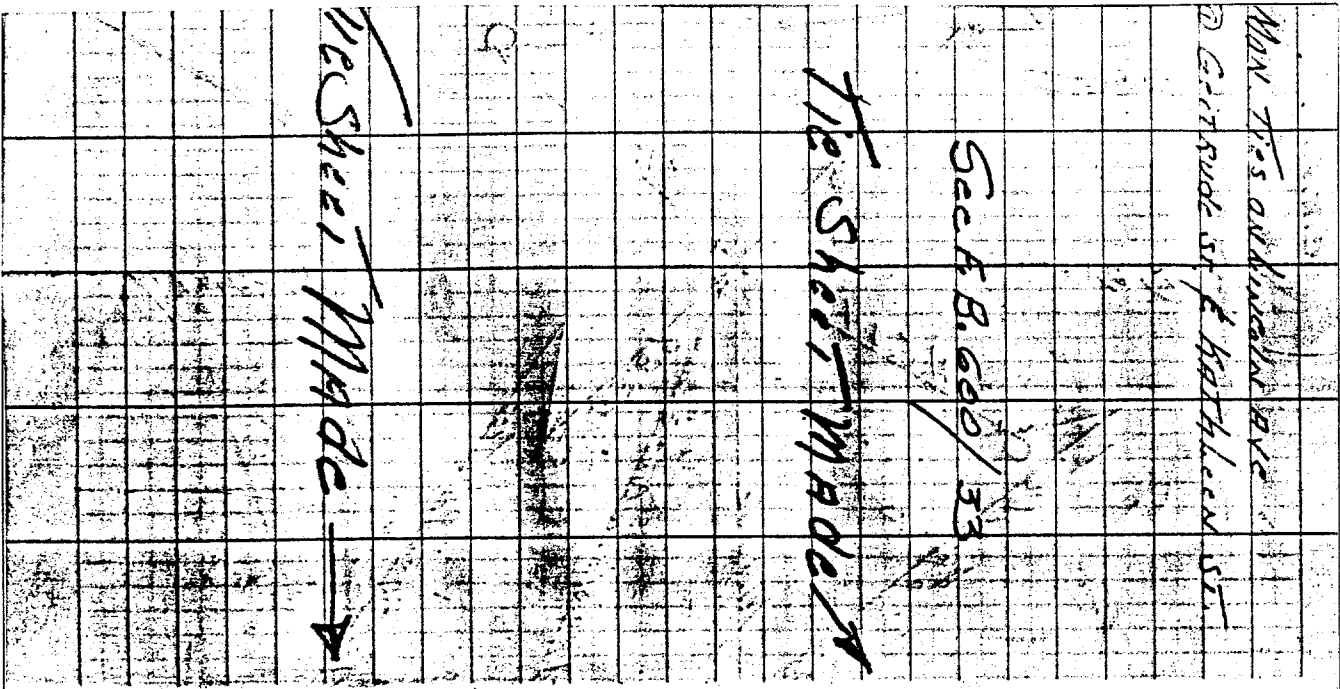 Mon Ties on Lincoln Ave
@ Gertrude St & Kathleen St.
See F.B. 600/33
Tie Sheet Made
Tie Sheet Made